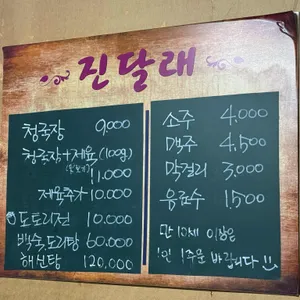 진달래
청국장 9.000
청국장+제육(100g)
11.000
제육추가 10.000
도토리전 10.000
백숙,도리탕 60.000
해신탕 120.000
소주 4.000
맥주 4.500
막걸리 3.000
음료수 1.500
만 10세 이상은
1인 1주문 바랍니다